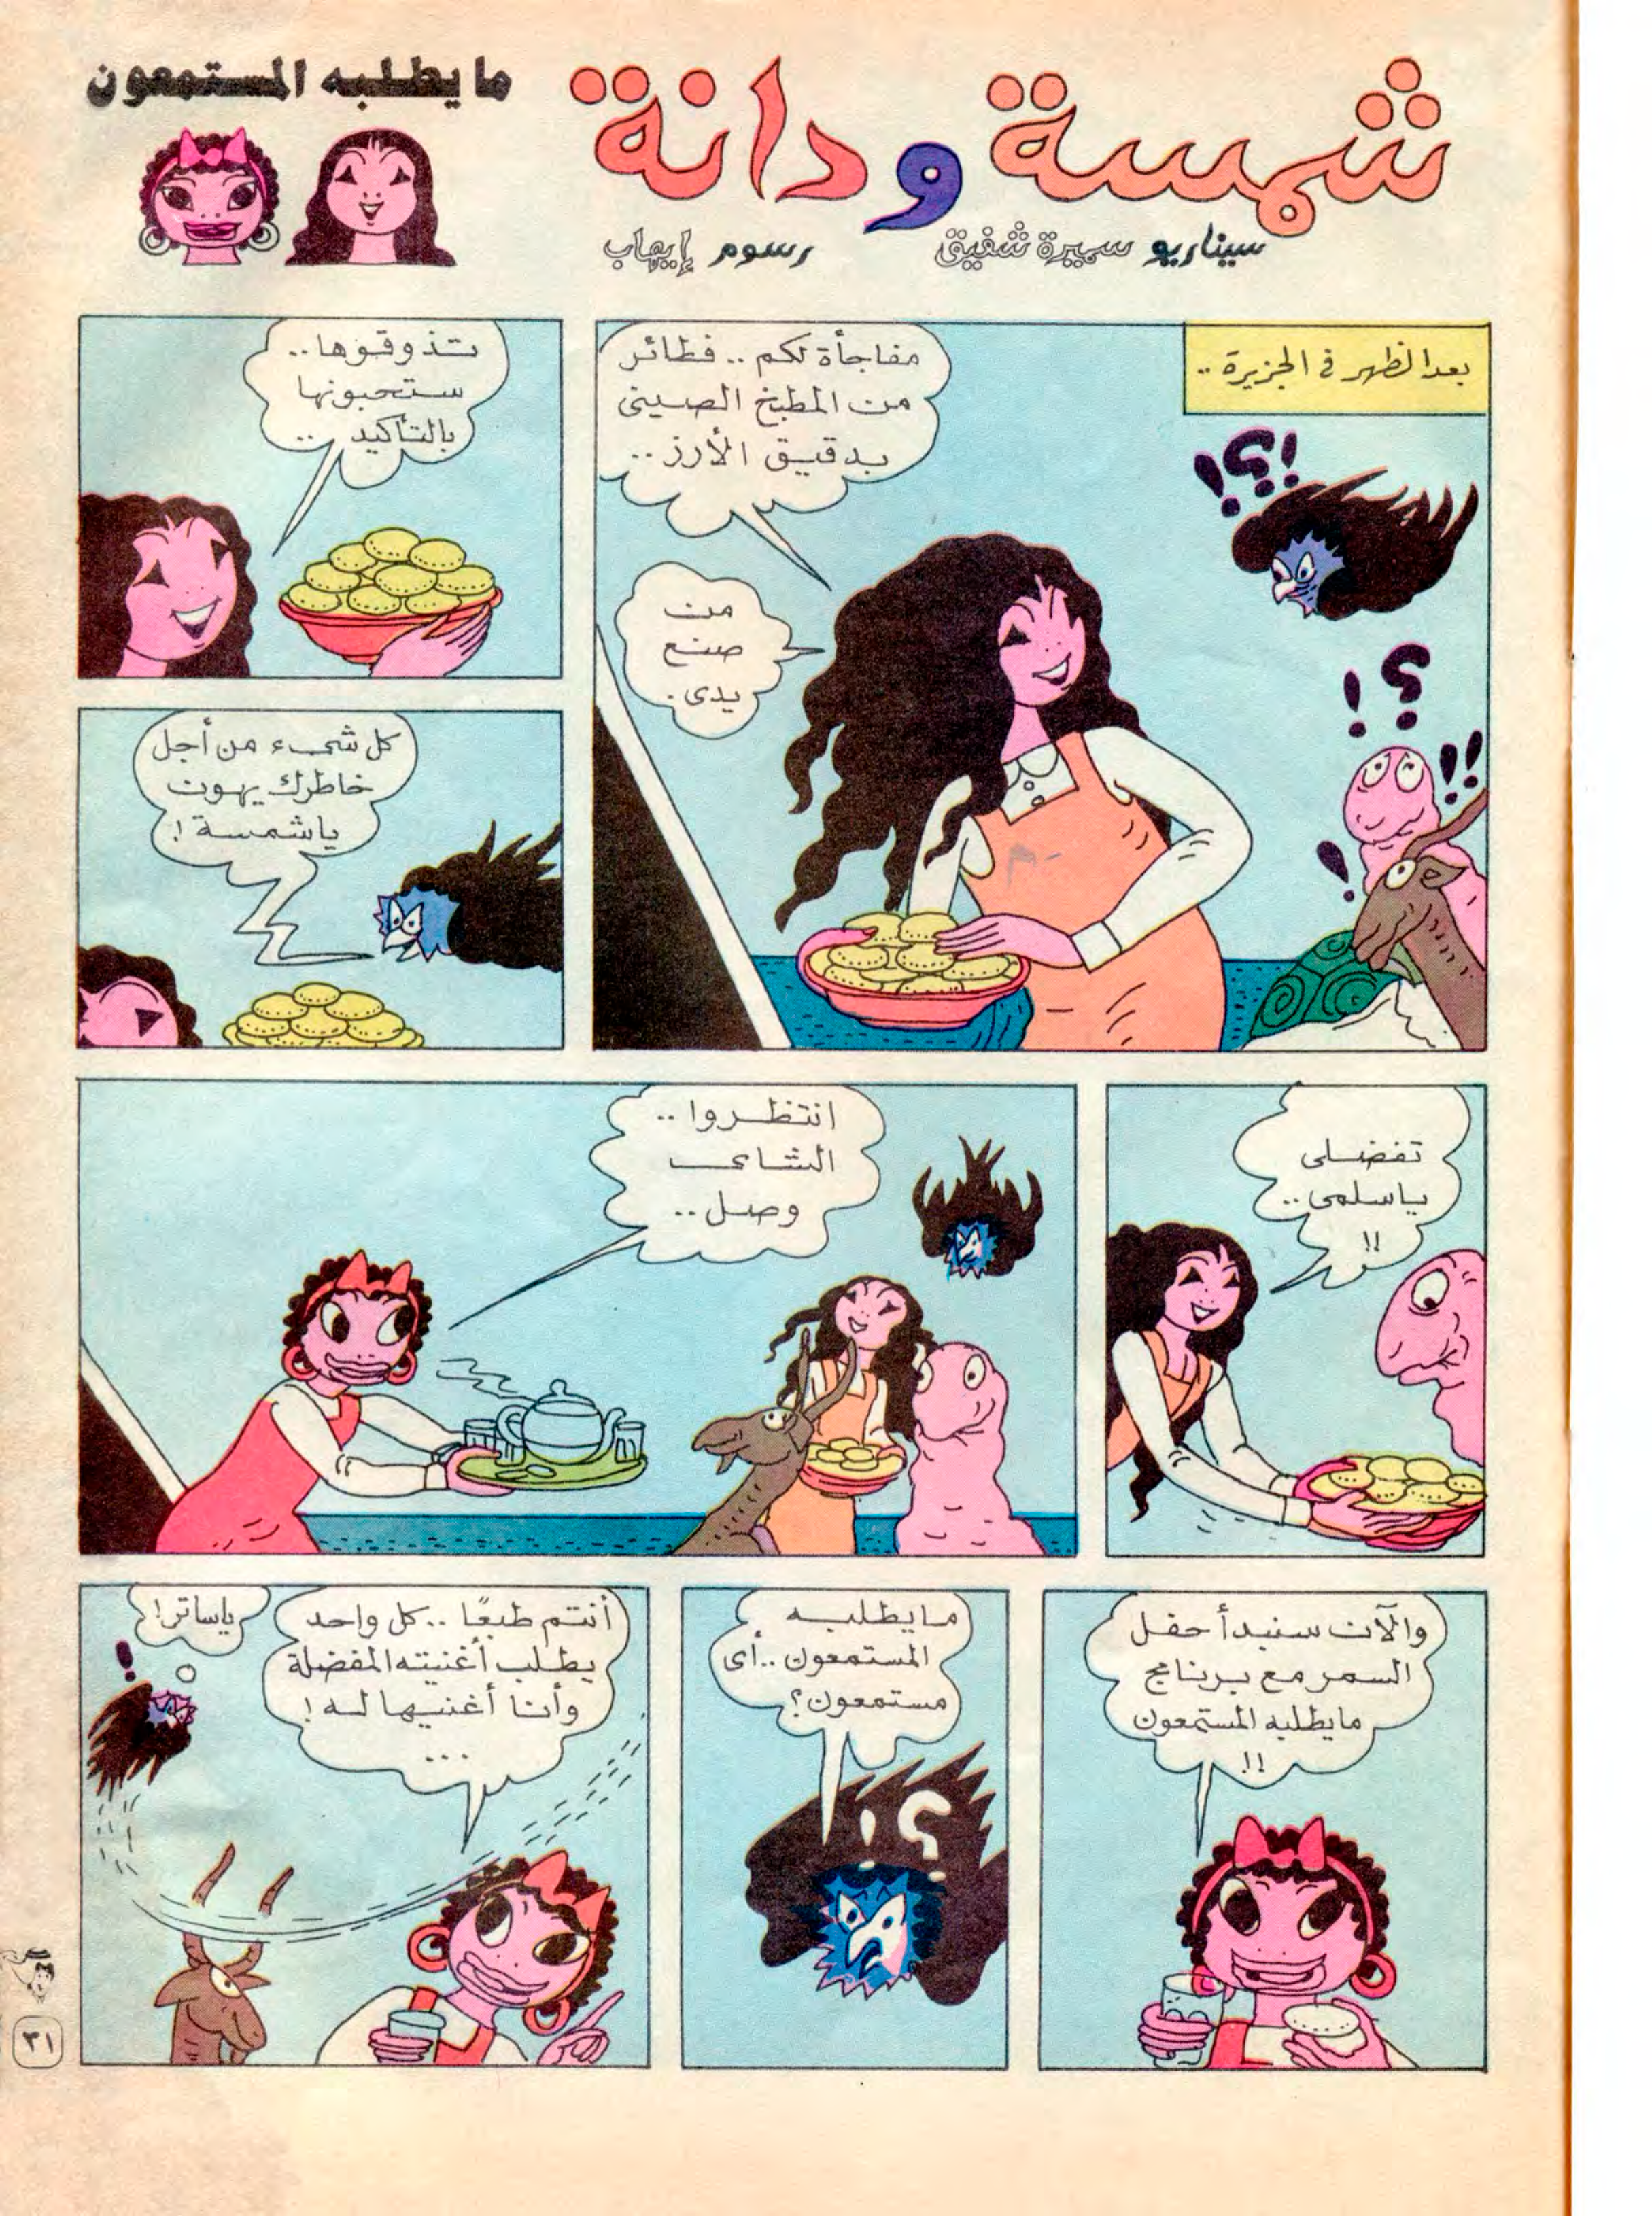 شمسة ودانة
ما يطلبه المستمعون
سيناريو سميرة شفيق
رسوم إيهاب
بعد الظهر في الجزيرة ..
مفاجأة لكم .. فطائر
من المطبخ الصينى
بدقيق الأرز ..
من
صنع
يدى .
تذوقوها ..
ستحبونها
بالتأكيد ..
كل شىء من أجل
خاطرك يهون
ياشمسة !
تفضلى
ياسلمى ..
!!
انتظروا ..
الشاى
وصل ..
والآن سنبدأ حفل
السمر مع برنامج
مايطلبه المستمعون
!!
مايطلبه
المستمعون .. أى
مستمعون ؟
أنتم طبعًا .. كل واحد
يطلب أغنيته المفضلة
وأنا أغنيها له !
...
ياساتر !
٣١